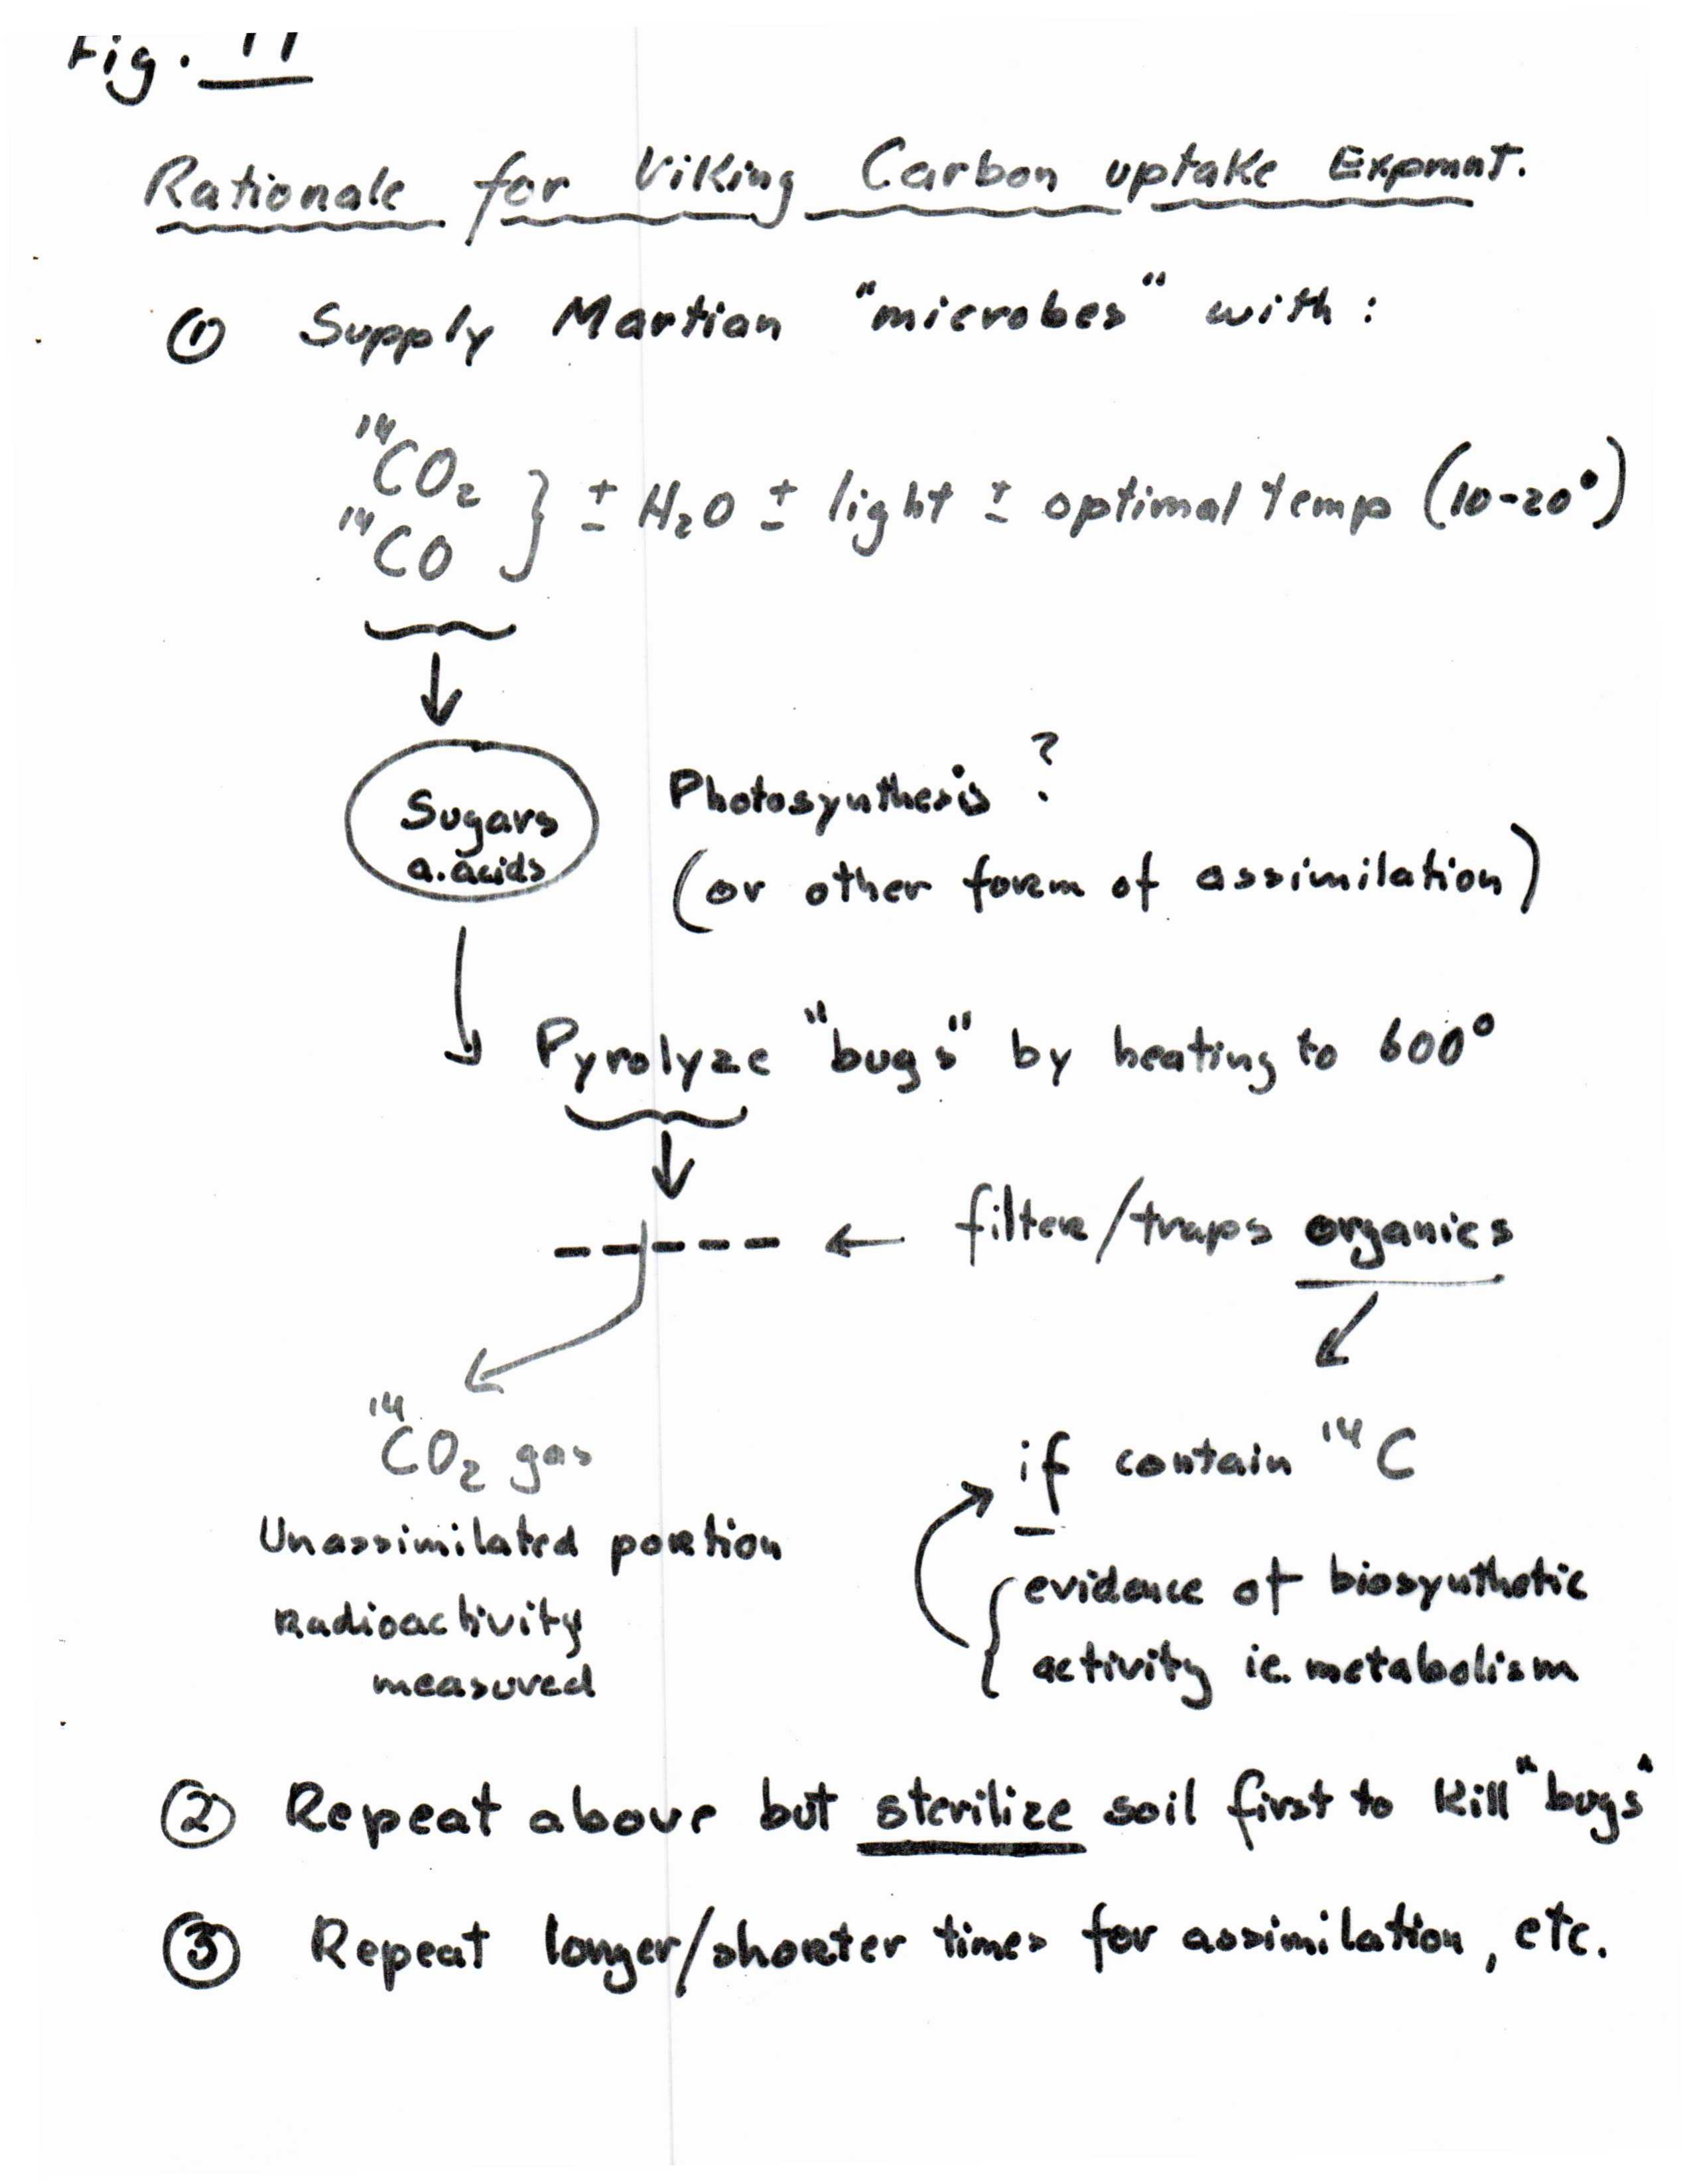 Fig. 11
Rationale for Viking Carbon uptake Expmnt.
① Supply Martian "microbes" with :
¹⁴CO₂
¹⁴CO } ± H₂O ± light ± optimal temp (10-20°)
Sugars
a. acids
Photosynthesis ?
(or other form of assimilation)
Pyrolyze "bugs" by heating to 600°
← filter/traps organics
¹⁴CO₂ gas
Unassimilated portion
radioactivity
measured
if contain ¹⁴C
evidence of biosynthetic
activity ie. metabolism
② Repeat above but sterilize soil first to kill "bugs"
③ Repeat longer/shorter times for assimilation, etc.